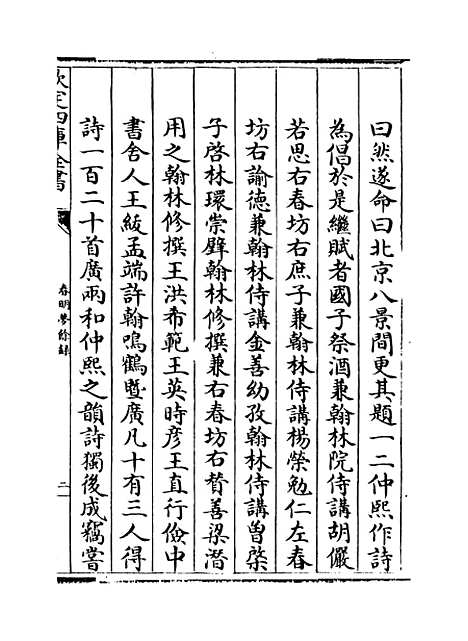 曰然遂命曰北京八景間更其題一二仲熙作詩
為倡於是繼賦者國子祭酒兼翰林院侍講胡儼
若思右春坊右庶子兼翰林侍講楊榮勉仁左春
坊右諭德兼翰林侍講金善幼孜翰林侍講曾棨
子啓林環崇璧翰林修撰兼右春坊右賛善梁潛
用之翰林修撰王洪希範王英時彦王直行儉中
書舍人王紱孟端許翰鳴鶴暨廣凡十有三人得
詩一百二十首廣兩和仲熙之韻詩獨後成竊嘗
欽定四庫全書
春明夢餘録
二